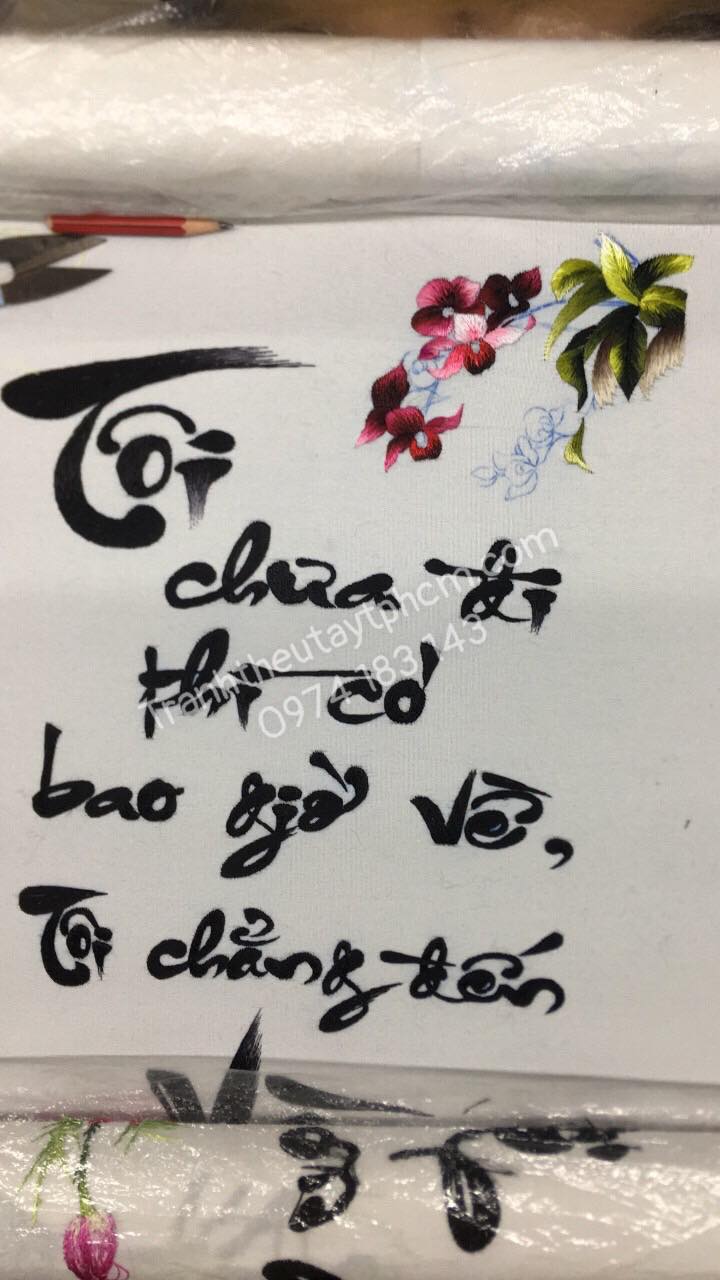 Tôi
chưa đi
thì có
bao giờ về,
Tôi chẳng đến
Tranhtheutaytphcm.com
0974 183 143